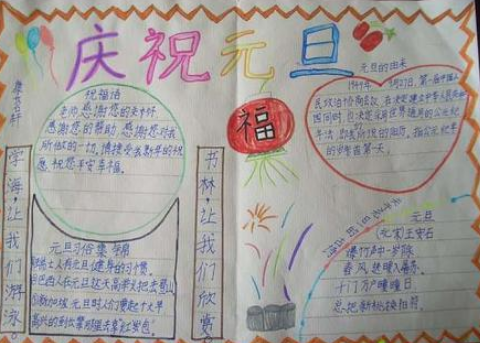 庆祝元旦
祝福语
老师感谢您的来
感谢您的帮助 感谢您对我
所做的一切,请接受我新年的祝
愿 祝您平安幸福。
学海,让我们游泳。
书林,让我们欣赏。
元旦习俗集
瑞士人有元旦健身的习惯。
巴西人在元旦这天高举火把
新加坡 元旦时人们
高兴的到出票那里去拿红包
福
元旦的由来
1949年 9月27日,第一届中国人
民政治协商会议,在决定建立中华人民共和
国同时,也决定采用世界通用的公元纪
年法,即我所说的阳历。指公元纪年
的岁首第一天。
元旦
王安石
爆竹声中一岁除
春风送暖入屠苏。
千门万户曈曈日
总把新桃换旧符。